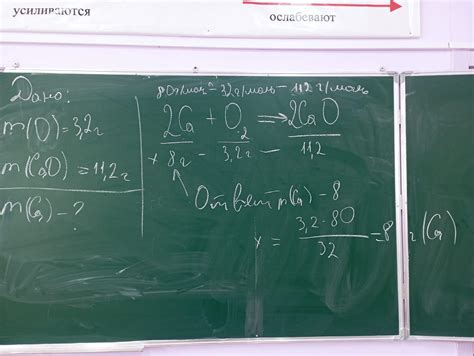 усиливаются
ослабевают
Дано:
m(O)=3,2г
m(CaO)=11,2г
m(Ca)-?
80г/моль - 32г/моль - 112г/моль
2Ca + O2 => 2CaO
x 8г - 3,2г - 11,2
Ответ m(Ca) - 8
x = 3,2·80/32 = 8 г (Ca)